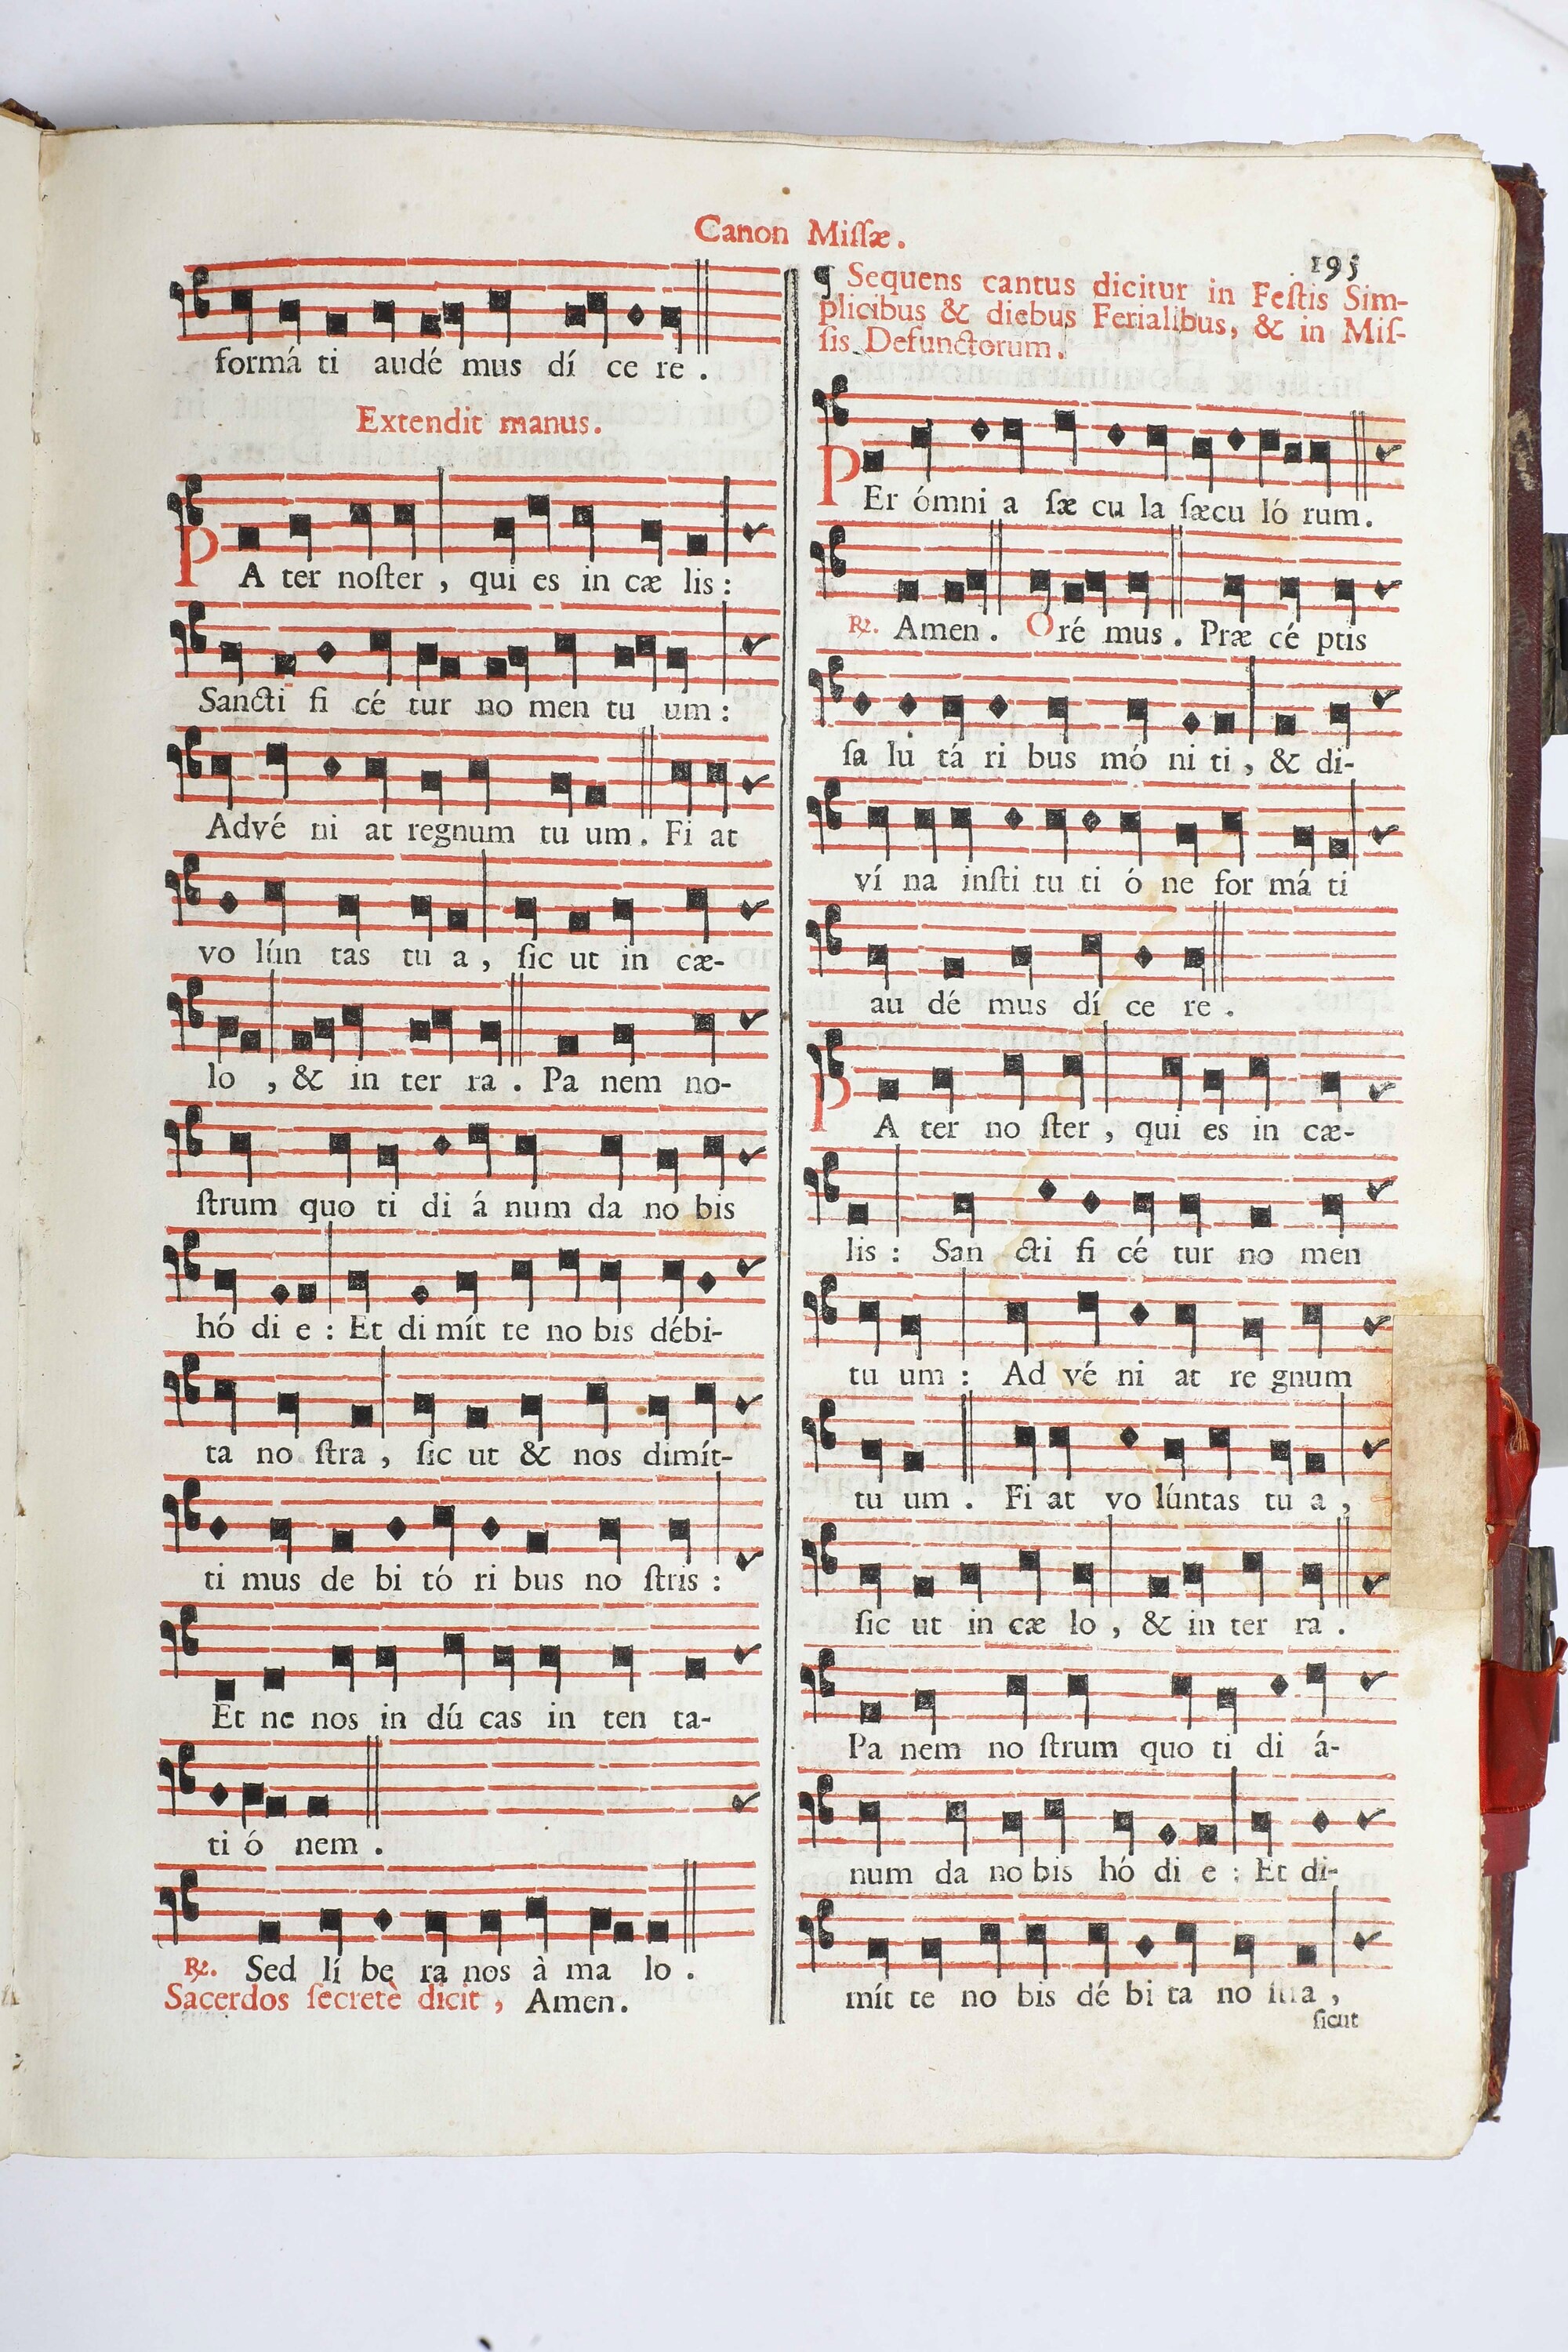 Canon Miſſæ.
195
formá ti audé mus dí ce re .
Extendit manus.
PA ter noſter , qui es in cæ lis :
Sancti fi cé tur no men tu um :
Advé ni at regnum tu um . Fi at
vo lún tas tu a , ſic ut in cæ-
lo , & in ter ra . Pa nem no-
ſtrum quo ti di á num da no bis
hó di e : Et di mít te no bis débi-
ta no ſtra , ſic ut & nos dimít-
ti mus de bi tó ri bus no ſtris :
Et ne nos in dú cas in ten ta-
ti ó nem .
℞. Sed lí be ra nos à ma lo .
Sacerdos ſecretè dicit , Amen.
¶ Sequens cantus dicitur in Feſtis Sim-
plicibus & diebus Ferialibus, & in Miſ-
ſis Defunctorum.
PEr ómni a ſæ cu la ſæcu ló rum.
℞. Amen . Oré mus . Præ cé ptis
ſa lu tá ri bus mó ni ti , & di-
ví na inſti tu ti ó ne for má ti
au dé mus dí ce re .
PA ter no ſter , qui es in cæ-
lis : San cti fi cé tur no men
tu um : Ad vé ni at re gnum
tu um . Fi at vo lúntas tu a ,
ſic ut in cæ lo , & in ter ra .
Pa nem no ſtrum quo ti di á-
num da no bis hó di e : Et di-
mít te no bis dé bi ta no ſtra ,
ſicut